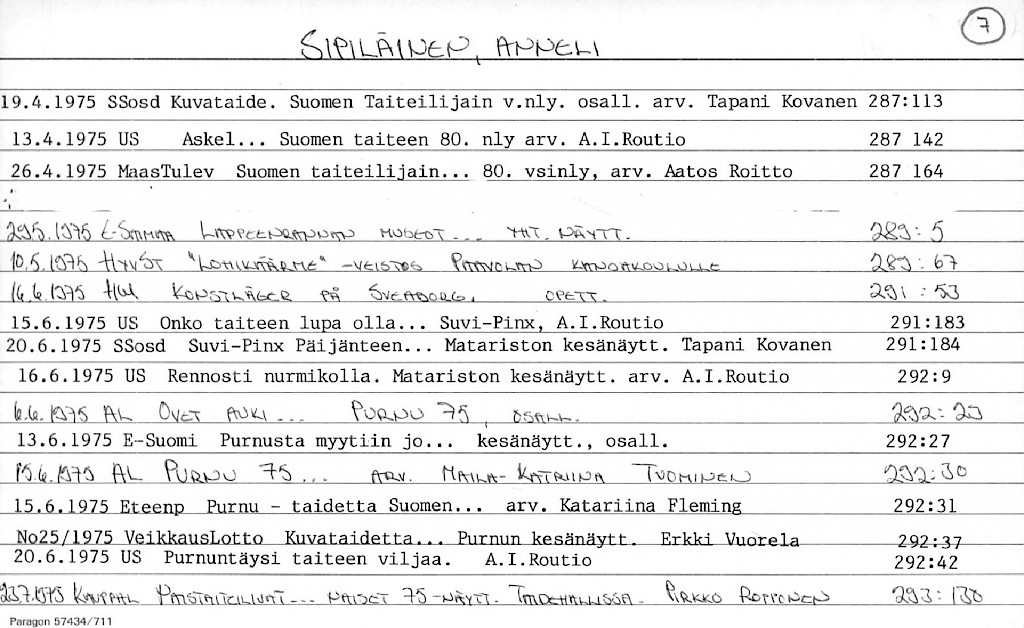 7
SIPILÄINEN, ANNELI
19.4.1975 SSosd Kuvataide. Suomen Taiteilijain v.nly. osall. arv. Tapani Kovanen 287:113
13.4.1975 US Askel... Suomen taiteen 80. nly arv. A.I.Routio 287 142
26.4.1975 MaasTulev Suomen taiteilijain... 80. vsinly, arv. Aatos Roitto 287 164
29.5.1975 E-SAIMAA LAPPEENRANNAN MUSEOT... YHT. NÄYTT. 289:5
10.5.1975 HYVST "LOHIKÄÄRME" -VEISTOS PAAVOLAN KANSAKOULULLE 289:67
16.6.1975 Hbl KONSTLÄGER PÅ SVEABORG, OPETT. 291:53
15.6.1975 US Onko taiteen lupa olla... Suvi-Pinx, A.I.Routio 291:183
20.6.1975 SSosd Suvi-Pinx Päijänteen... Matariston kesänäytt. Tapani Kovanen 291:184
16.6.1975 US Rennosti nurmikolla. Matariston kesänäytt. arv. A.I.Routio 292:9
6.6.1975 AL OVET AUKI... PURNU 75, OSALL. 292:23
13.6.1975 E-Suomi Purnusta myytiin jo... kesänäytt., osall. 292:27
15.6.1975 AL PURNU 75... ARV. MAILA-KATRIINA TUOMINEN 292:30
15.6.1975 Eteenp Purnu - taidetta Suomen... arv. Katariina Fleming 292:31
No25/1975 VeikkausLotto Kuvataidetta... Purnun kesänäytt. Erkki Vuorela 292:37
20.6.1975 US Purnuntäysi taiteen viljaa. A.I.Routio 292:42
23.7.1975 KAUPPAL NAISTAITEILIJAT... NAISET 75-NÄYTT. TAIDEHALLISSA. PIRKKO 293:130
Paragon 57434/711